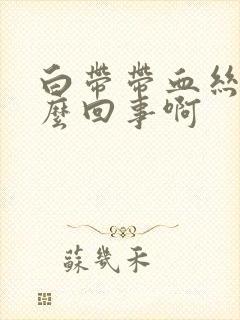 白帶帶血絲
麼回事啊
蘇幾禾